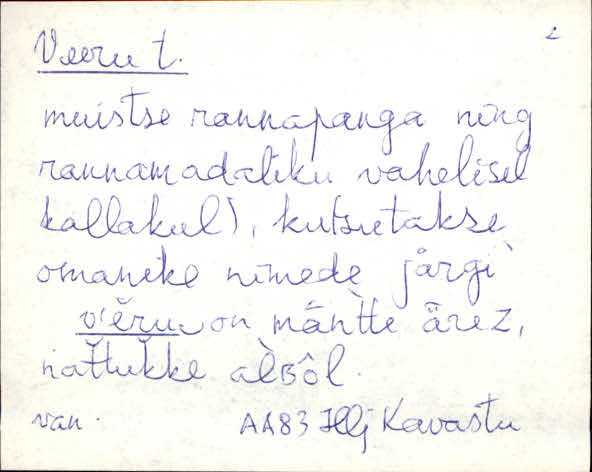 2
Veeru t.
muistse rannapanga ning
rannamadaliku vahelisel
kallakul), kutsutakse
omanike nimede järgi
v'ĕru on mäntte ärez,
alʙôl.
van. AA83 Hlj Kavastu